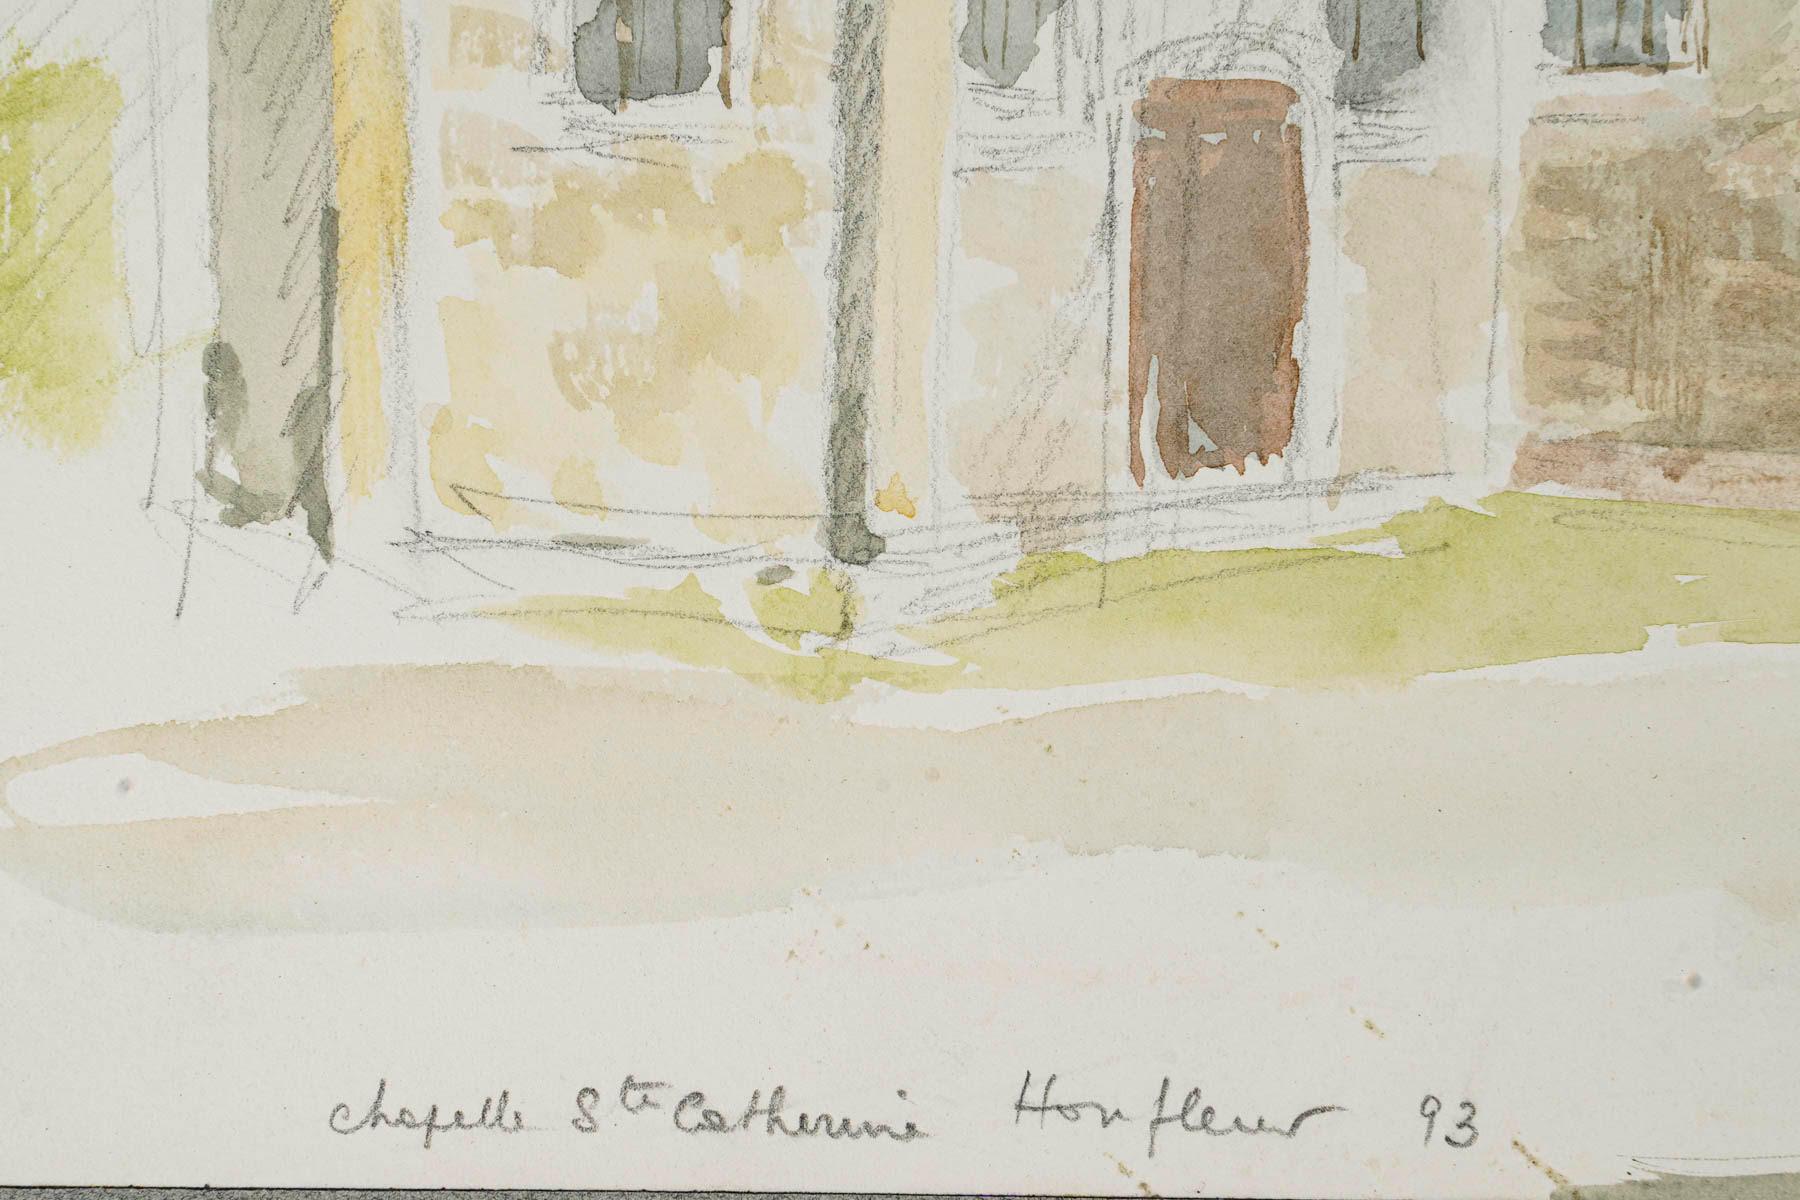 chapelle Ste Catherine Honfleur 93